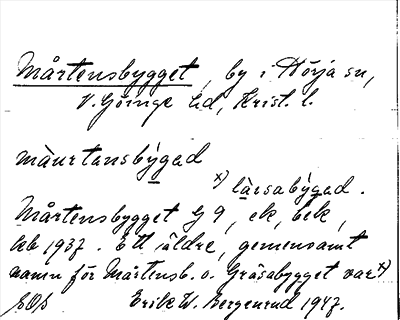 Mårtensbygget, by i Hörja sn,
V. Göinge hd, Krist. l.
màurtansbýgad
x) làrsabýgad.
Mårtensbygget G 9, ek, bebk,
kb 1937. Ett äldre, gemensamt
namn för Mårtensb. o. Gråsabygget var x)
Erik W. Bergenrud 1947.